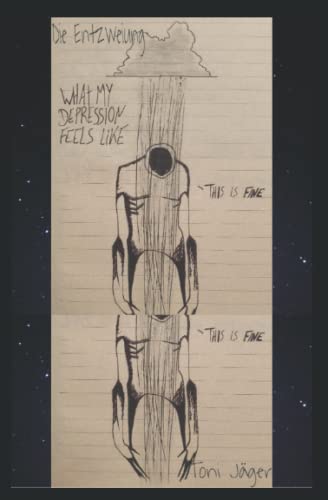 Die Entzweiung
WHAT MY
DEPRESSION
FEELS LIKE
THIS IS FINE
THIS IS FINE
Toni Jäger